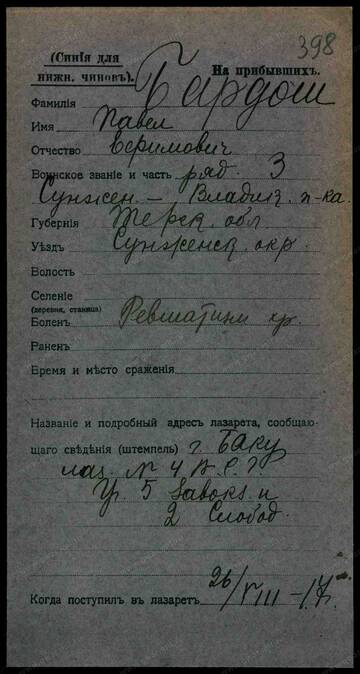 398
(Синія для нижн. чиновъ).
На прибывшихъ.
Фамилія Бардош
Имя Павел
Отчество Ефимович
Воинское званіе и часть ряд. 3
Сунжен. – Владик. п-ка
Губернія Терск. обл
Уѣздъ Сунженск. окр.
Волость
Селеніе
(деревня, станица)
Боленъ Ревматизм
Раненъ
Время и мѣсто сраженія
Названіе и подробный адресъ лазарета, сообщаю-
щаго свѣдѣнія (штемпель) г. Баку
лаз. № 4 В. С. Г.
5
2 Слобод.
Когда поступилъ въ лазаретъ 26/VIII – 17 г.